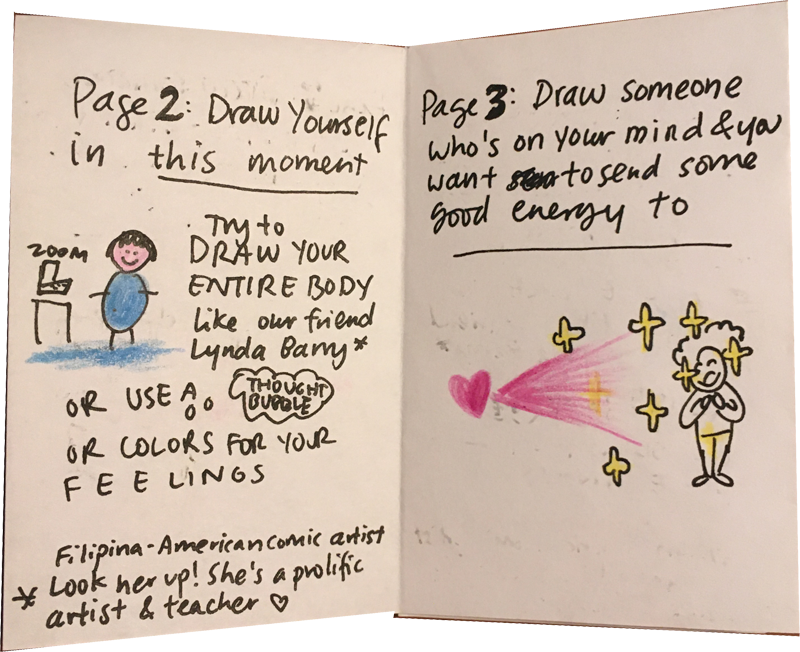 Page 2: Draw Yourself
in this moment
ZOOM
Try to
DRAW YOUR
ENTIRE BODY
like our friend
Lynda Barry*
OR USE A
THOUGHT
BUBBLE
OR COLORS FOR YOUR
FEELINGS
Filipina-American comic artist
* Look her up! She's a prolific
artist & teacher ♡
Page 3: Draw someone
who's on your mind & you
want to send some
good energy to